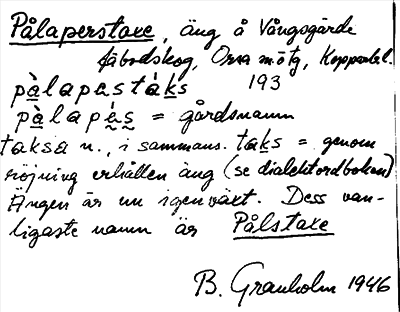 Pålaperstaxe, äng å Vångsgärde
fäbodskog, Orsa mötg, Kopparbl.
193
pàlapestáks
pàlapés = gårdsnamn
taksa n., i sammans. taks = genom
röjning erhållen äng (se dialektordboken)
Ängen är nu igenväxt. Dess van-
ligaste namn är Pålstaxe
B. Granholm 1946